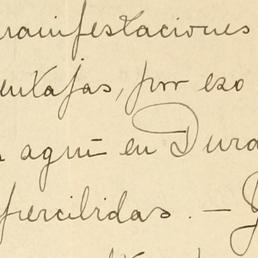 manifestaciones
entajas, por eso
aquí en Dura
percibidas. —